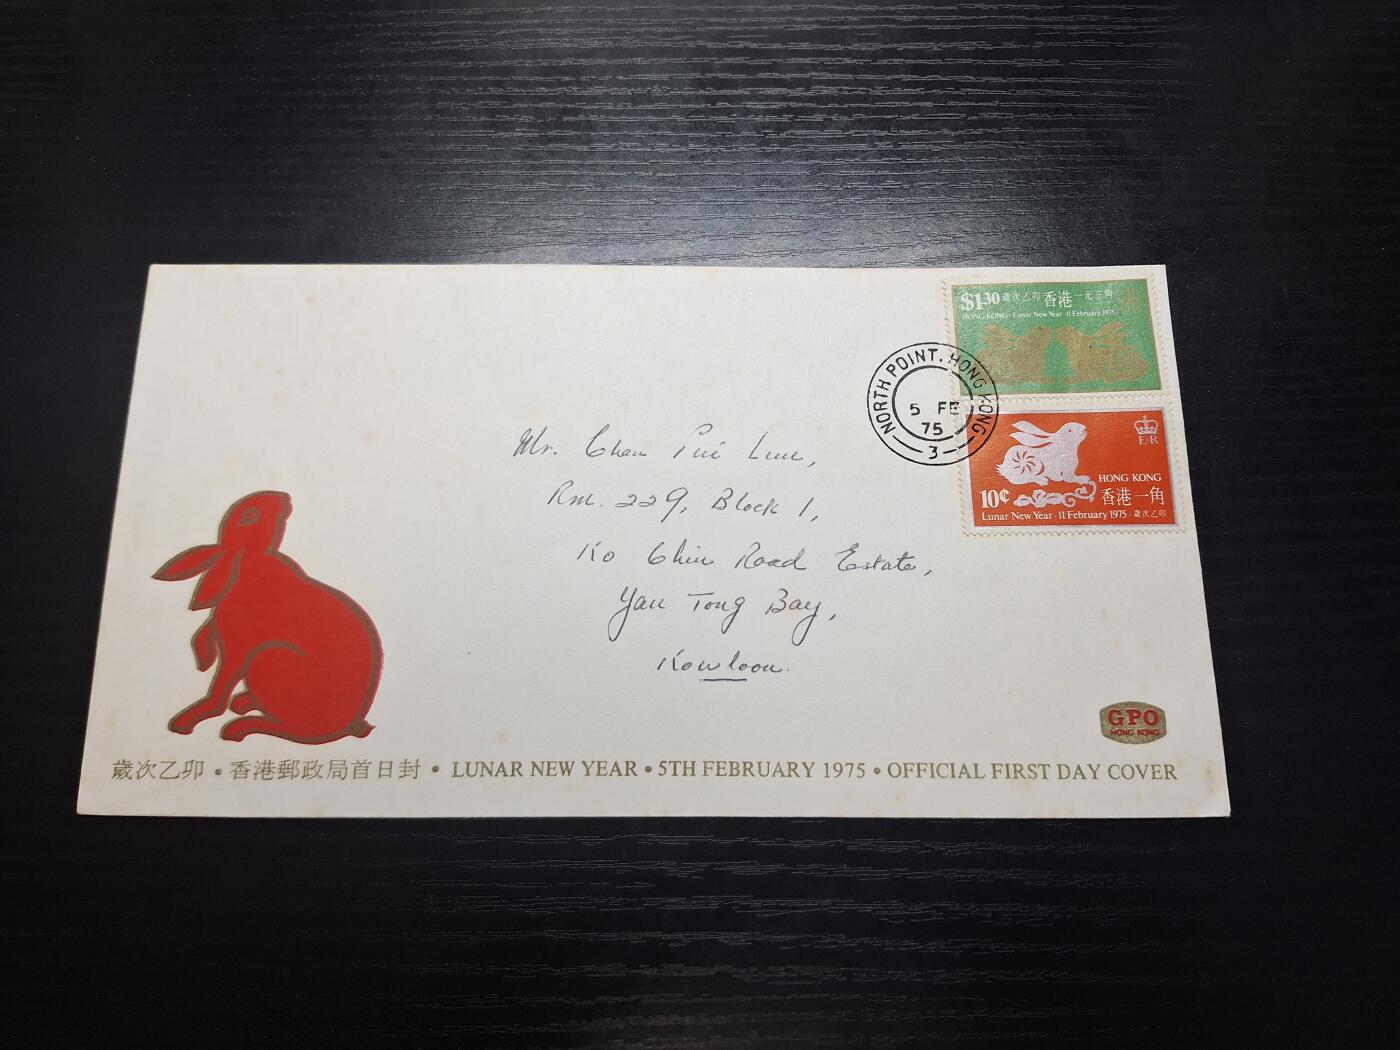 $1.30 歲次乙卯 香港 一元三角
HONG KONG · Lunar New Year · 11 February 1975
NORTH POINT. HONG KONG
5 FE
75
3
E R
HONG KONG
10¢ 香港一角
Lunar New Year · 11 February 1975 · 歲次乙卯
Mr. Chan Pui Lun,
Rm. 229, Block 1,
Ko Chiu Road Estate,
Yau Tong Bay,
Kowloon.
GPO
HONG KONG
歲次乙卯 • 香港郵政局首日封 • LUNAR NEW YEAR • 5TH FEBRUARY 1975 • OFFICIAL FIRST DAY COVER